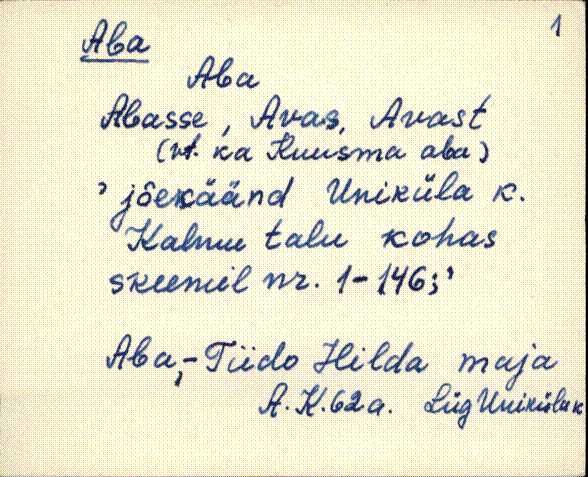 1
Aba
Aba
Abasse, Avas, Avast
(vt. ka Kuusma aba)
' jõekäänd Uniküla k.
Kalmu talu kohas
skeemil nr. 1-146;'
Aba,- Tiido Hilda maja
A.K.62a. Lüg Uniküla k